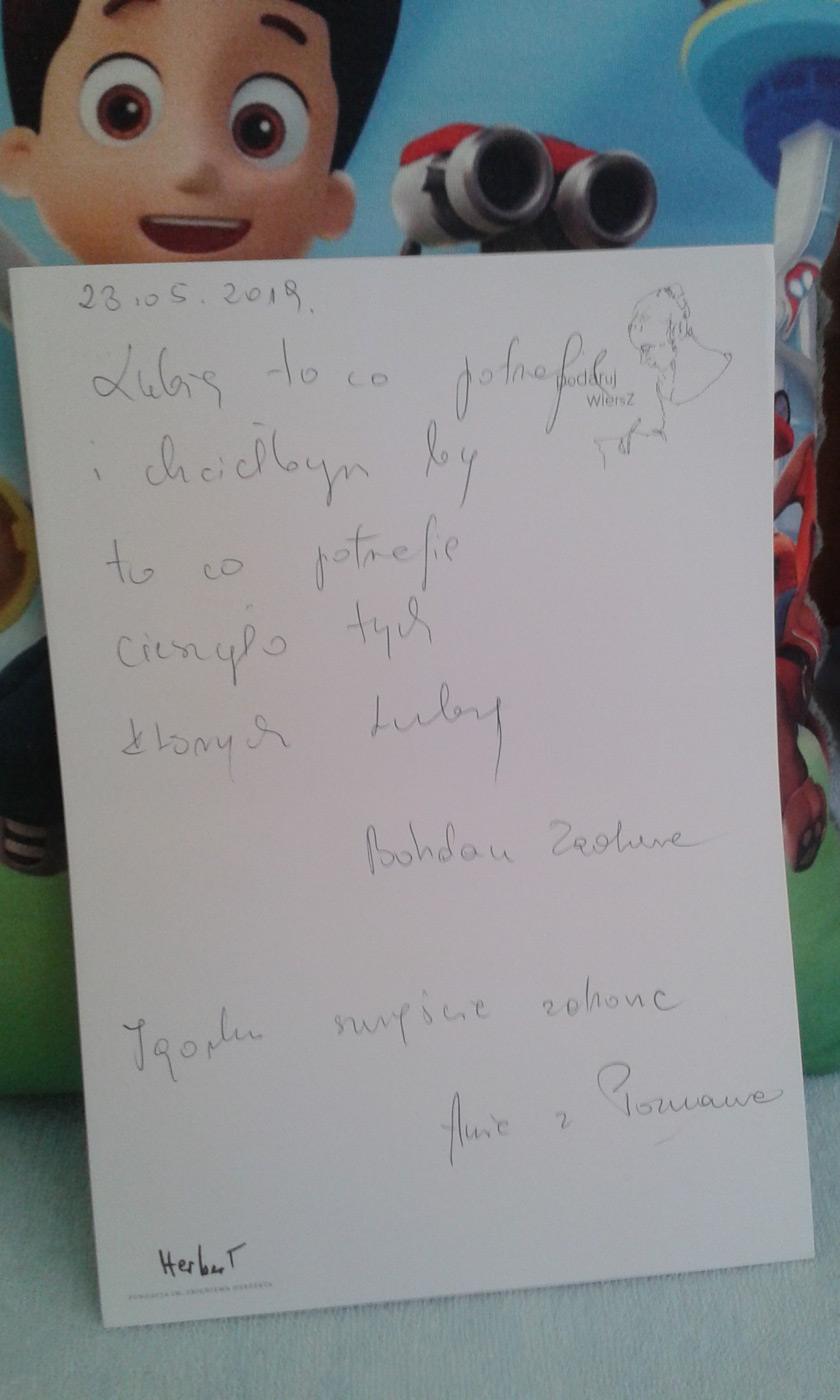 23.05.2019.
Lubię to co potrafię
podaruj
wiersz
i chciałbym by
to co potrafię
cieszyło tych
których Lubię
Bohdan Zadura
Igorku zawyście
Ania z Poznania
Herbert
FUNDACJA IM. ZBIGNIEWA HERBERTA